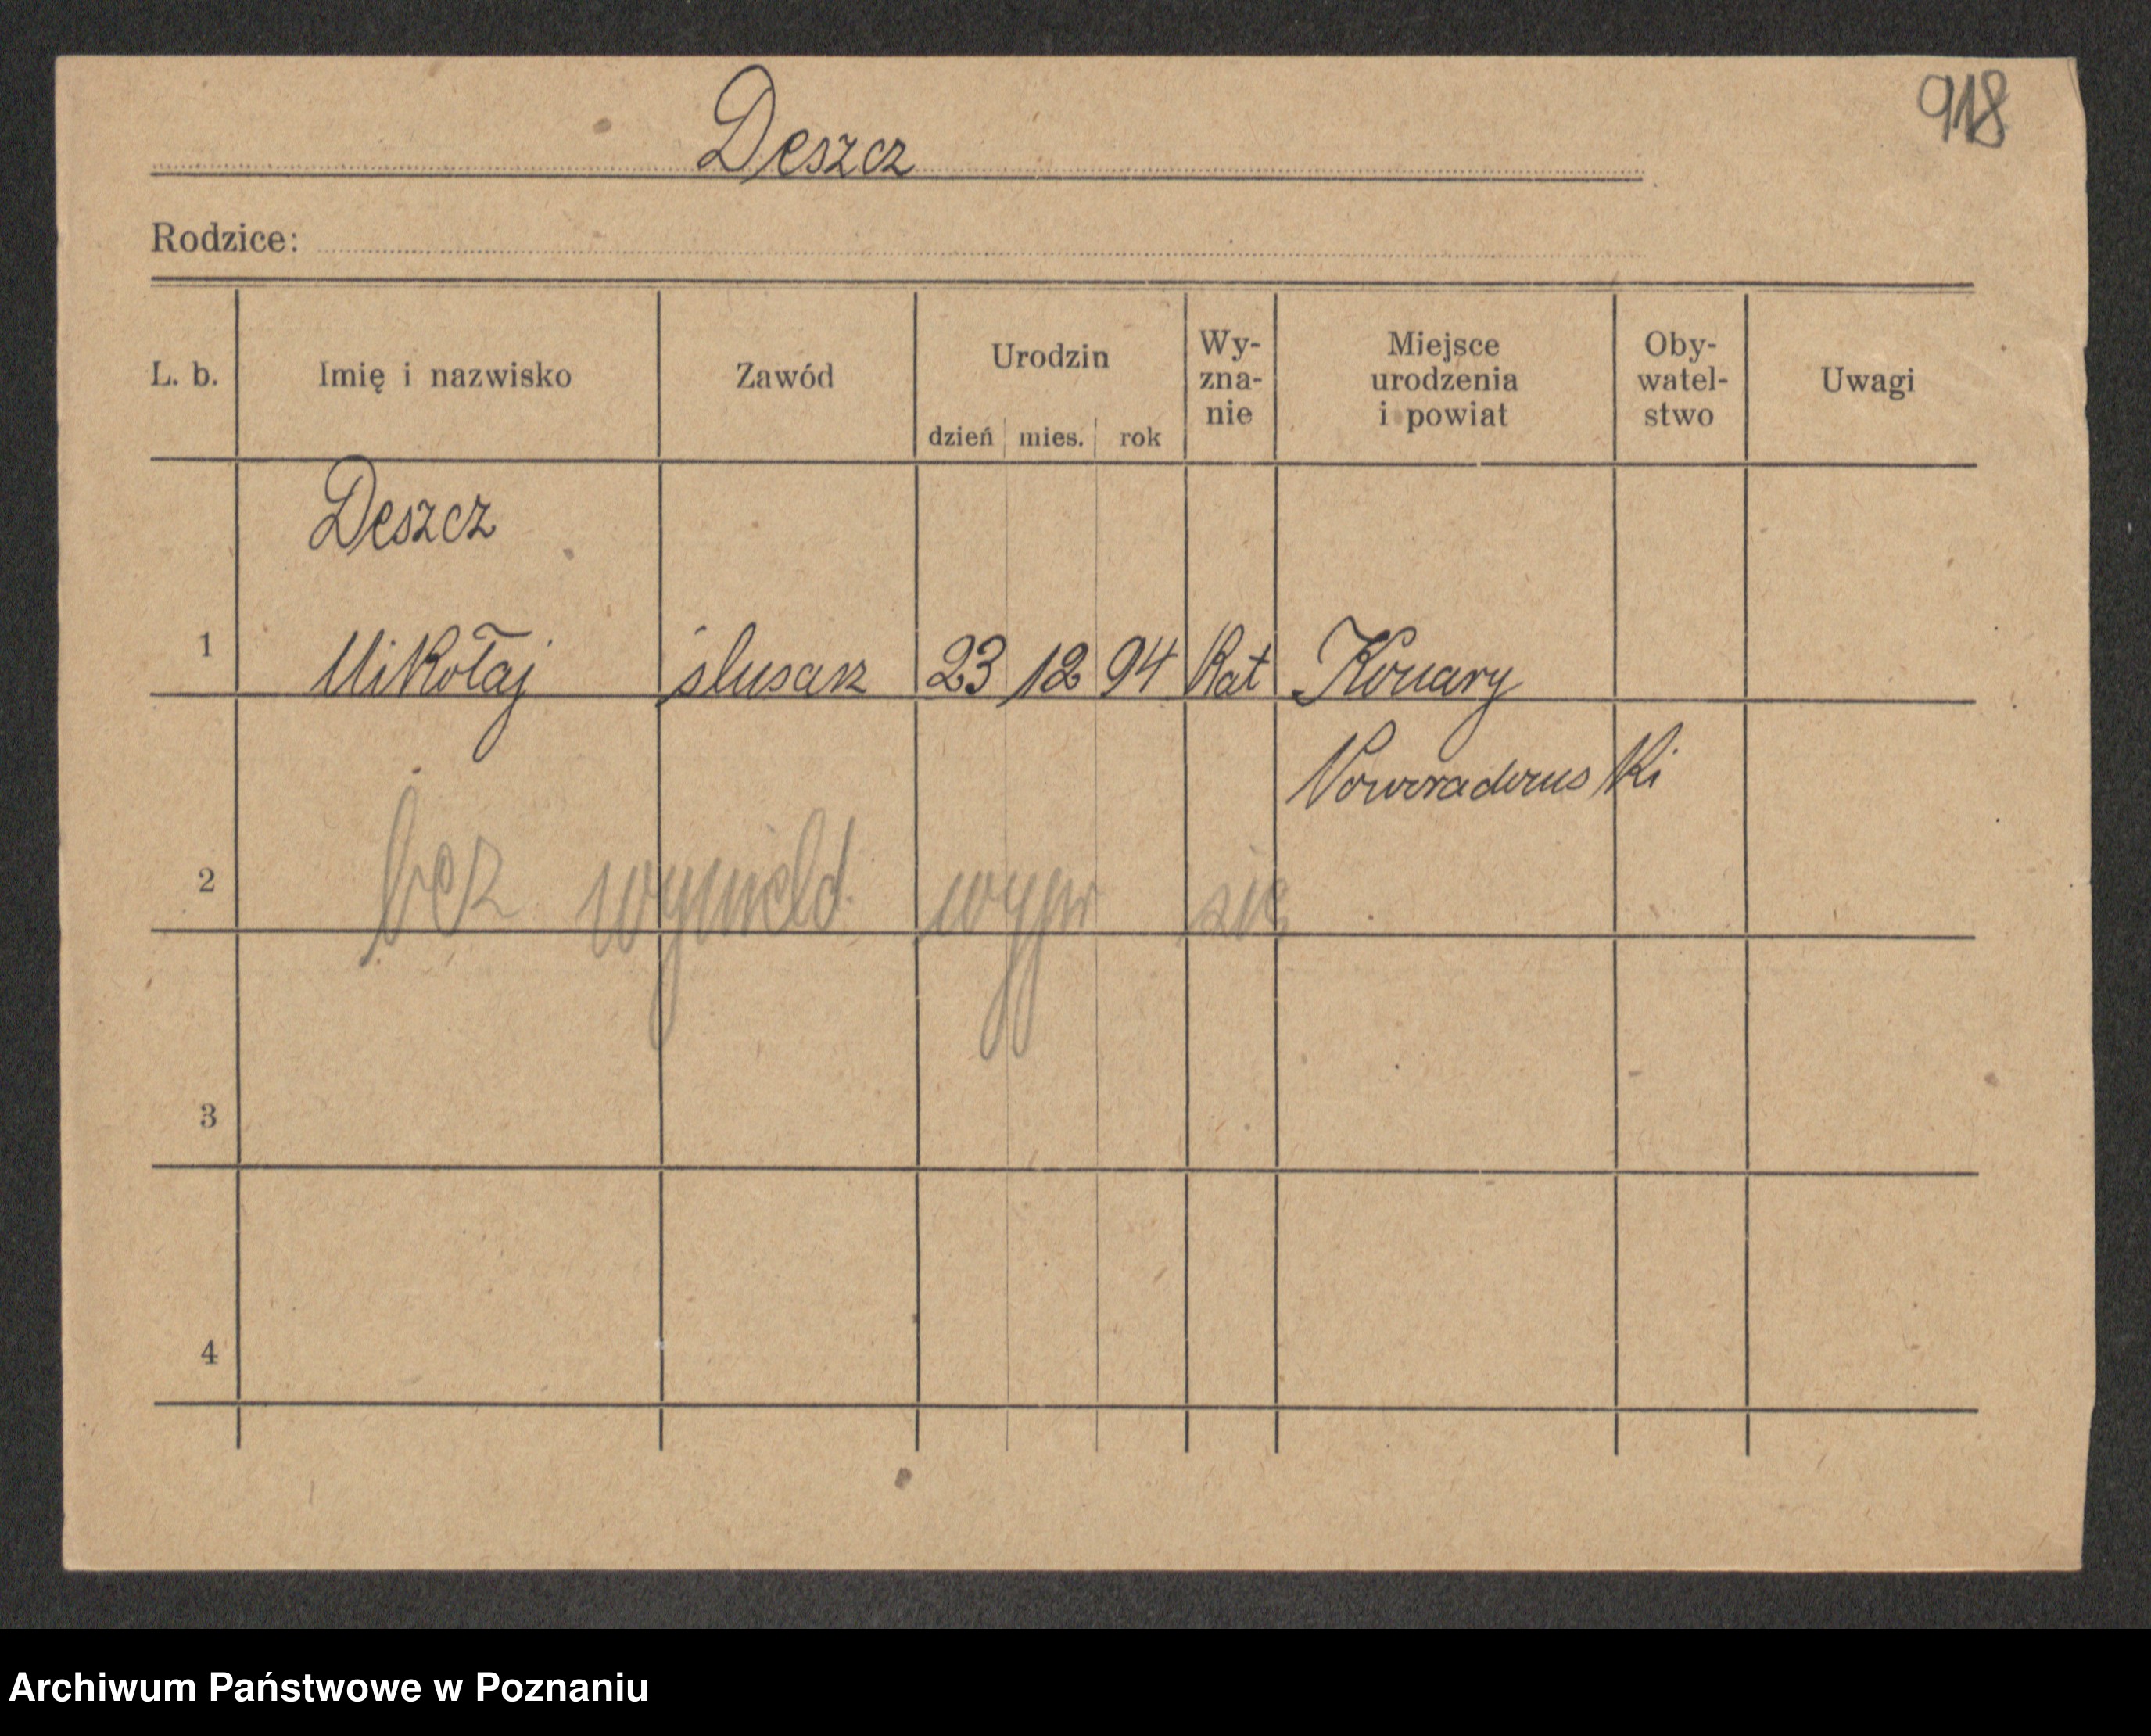 918
Deszcz
Rodzice:
L. b. Imię i nazwisko Zawód Urodzin dzień mies. rok Wy-zna-nie Miejsce urodzenia i powiat Oby-watel-stwo Uwagi
Deszcz
1 Mikołaj ślusarz 23 12 94 Kat Konary
Noworadomski
2 bez wymeld. wypr się
3
4
Archiwum Państwowe w Poznaniu